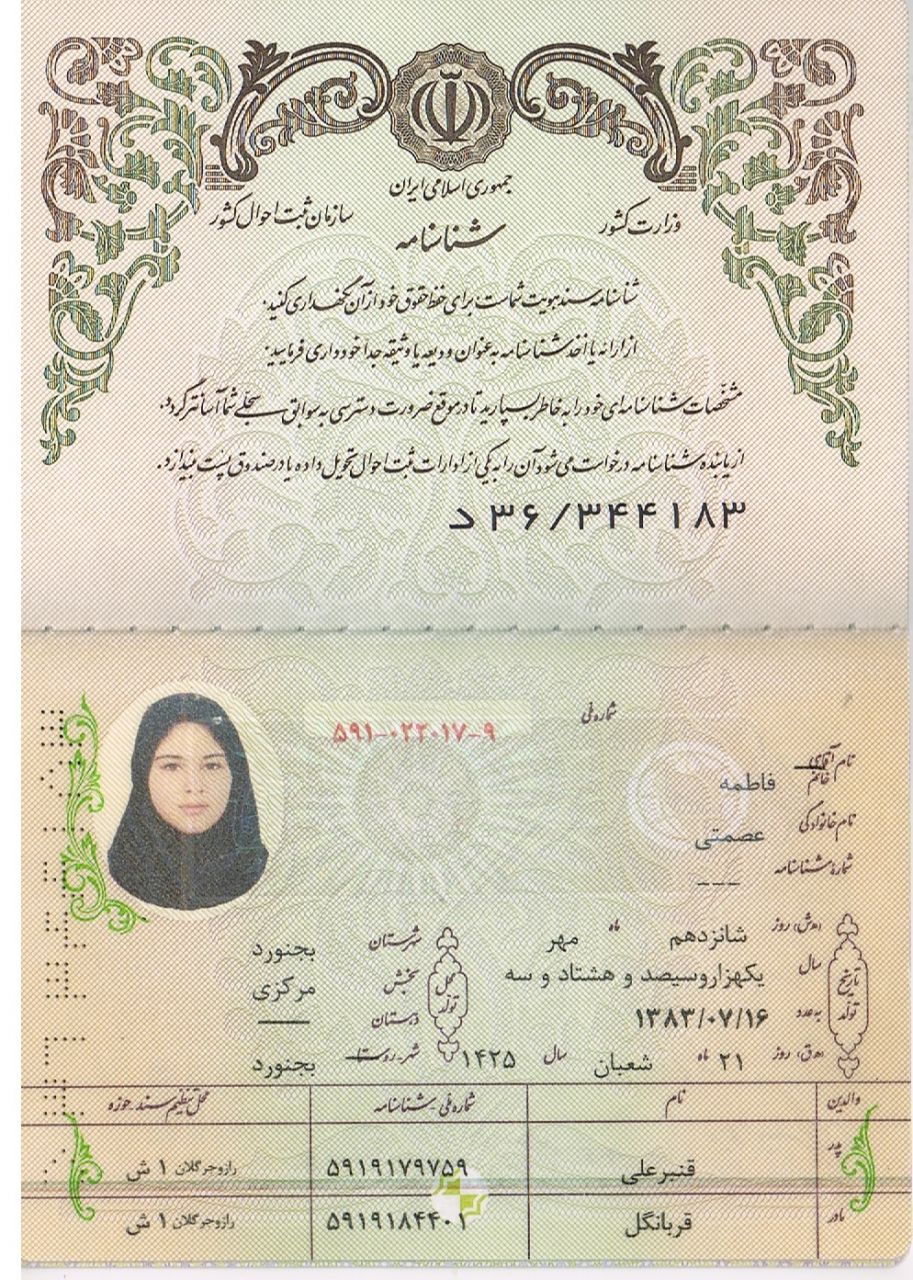 جمهوری اسلامی ایران
وزارت کشور
سازمان ثبت احوال کشور
شناسنامه
شناسنامه سند هویت شماست برای حفظ حقوق خود از آن نگهداری کنید.
از ارائه یا اخذ شناسنامه به عنوان ودیعه یا وثیقه جدا خودداری فرمایید.
مشخصات شناسنامه‌ای خود را به خاطر بسپارید تا در موقع ضرورت دسترسی به سوابق سجلی شما آسانتر گردد.
از یابنده شناسنامه درخواست می‌شود آن را به یکی از ادارات ثبت احوال تحویل داده یا در صندوق پست بیندازد.
د ۳۶/۳۴۴۱۸۳
شماره ملی ۵۹۱-۰۲۲۰۱۷-۹
نام آقای خانم فاطمه
نام خانوادگی عصمتی
شماره شناسنامه ---
تاریخ تولد
(ه.ش) روز شانزدهم ماه مهر
سال یکهزاروسیصد و هشتاد و سه
به عدد ۱۳۸۳/۰۷/۱۶
(ه.ق) روز ۲۱ ماه شعبان سال ۱۴۲۵
محل تولد
شهرستان بجنورد
بخش مرکزی
دهستان ——
شهر-روستا بجنورد
والدین نام شماره ملی-شناسنامه محل تنظیم سند-حوزه
پدر قنبرعلی ۵۹۱۹۱۷۹۷۵۹ رازوجرگلان ۱ ش
مادر قربانگل ۵۹۱۹۱۸۴۴۰۱ رازوجرگلان ۱ ش